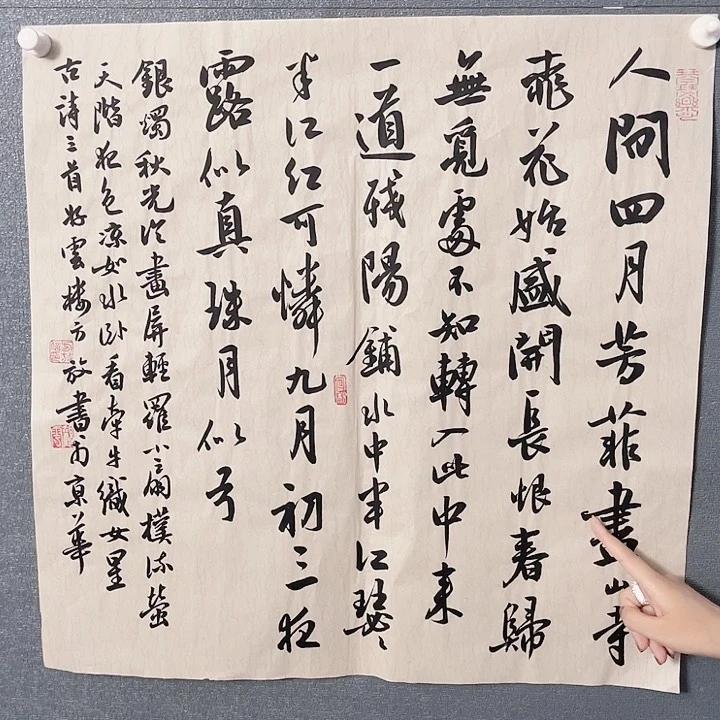 人間四月芳菲盡山寺
桃花始盛開長恨春歸
無覓處不知轉入此中來
一道殘陽鋪水中半江瑟〻
半江紅可憐九月初三夜
露似真珠月似弓
銀燭秋光冷畫屏輕羅小扇撲流螢
天階夜色涼如水卧看牽牛織女星
古詩三首好雲樓方放書京華